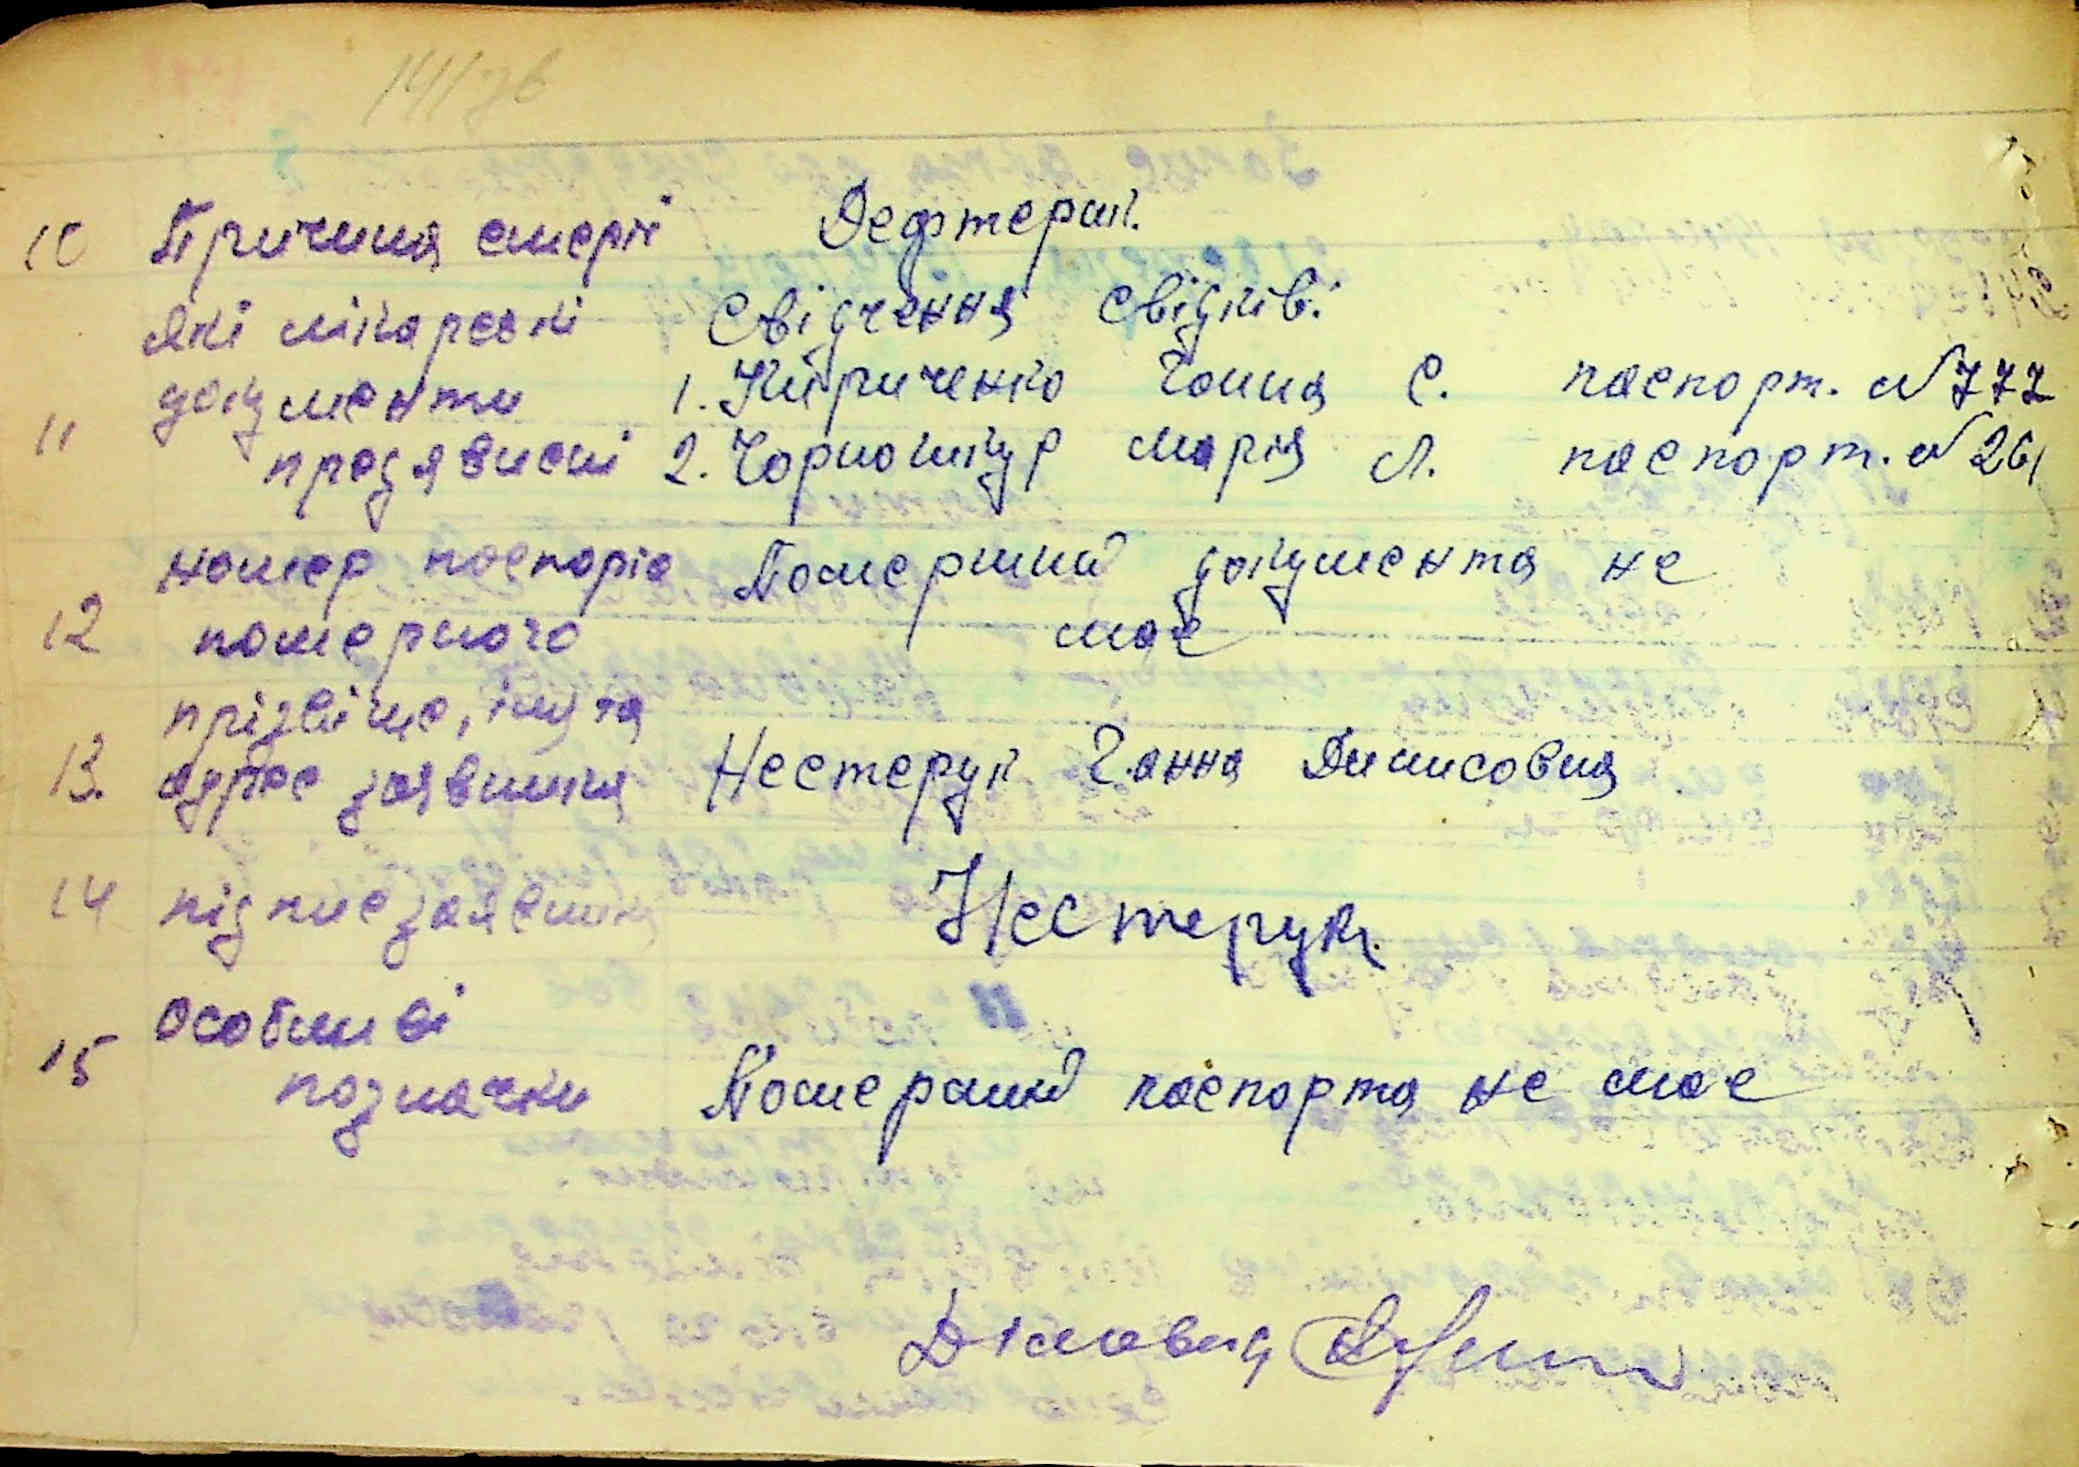 141 зв
10 Причина смерті Дефтерит.
Які лікарські свідчення свідків:
документи 1. Кириченко Ганна С. паспорт. №772
11 предявлені 2. Чорнощур Марія Л. паспорт. №261
номер паспорта Померший документа не
12 померлого має
прізвище, імя та
13. адрес заявника Нестерук Ганна Динисовна
14 підпис заявника Нестерук.
Особливі
15 позначки Померший паспорта не має
Діловод